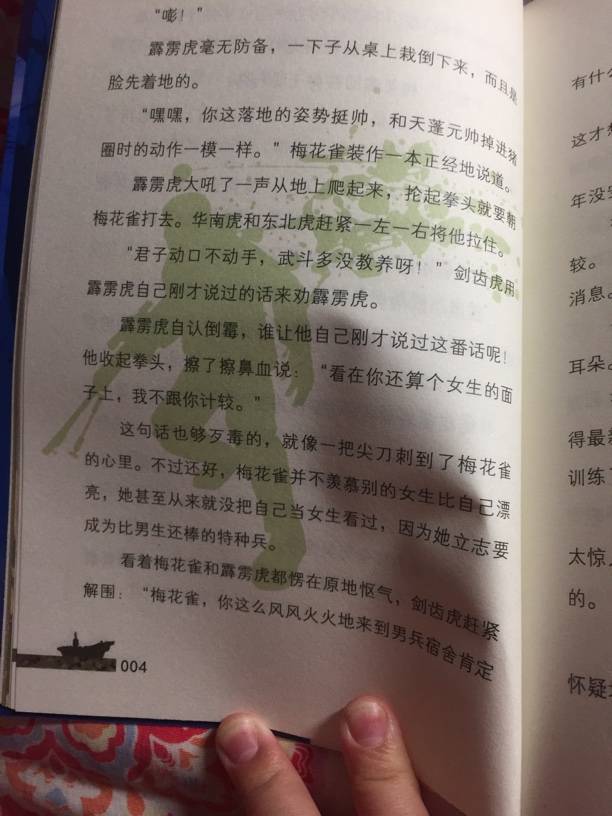 “嘭！”
霹雳虎毫无防备，一下子从桌上栽倒下来，而且是
脸先着地的。
“嘿嘿，你这落地的姿势挺帅，和天蓬元帅掉进猪
圈时的动作一模一样。”梅花雀装作一本正经地说道。
霹雳虎大吼了一声从地上爬起来，抡起拳头就要朝
梅花雀打去。华南虎和东北虎赶紧一左一右将他拉住。
“君子动口不动手，武斗多没教养呀！”剑齿虎用
霹雳虎自己刚才说过的话来劝霹雳虎。
霹雳虎自认倒霉，谁让他自己刚才说过这番话呢！
他收起拳头，擦了擦鼻血说：“看在你还算个女生的面
子上，我不跟你计较。”
这句话也够歹毒的，就像一把尖刀刺到了梅花雀
的心里。不过还好，梅花雀并不羡慕别的女生比自己漂
亮，她甚至从来就没把自己当女生看过，因为她立志要
成为比男生还棒的特种兵。
看着梅花雀和霹雳虎都愣在原地怄气，剑齿虎赶紧
解围：“梅花雀，你这么风风火火地来到男兵宿舍肯定
004
有什么
这才想
年没
较。
消息。
耳朵。
得最
训练
太惊
的。
怀疑